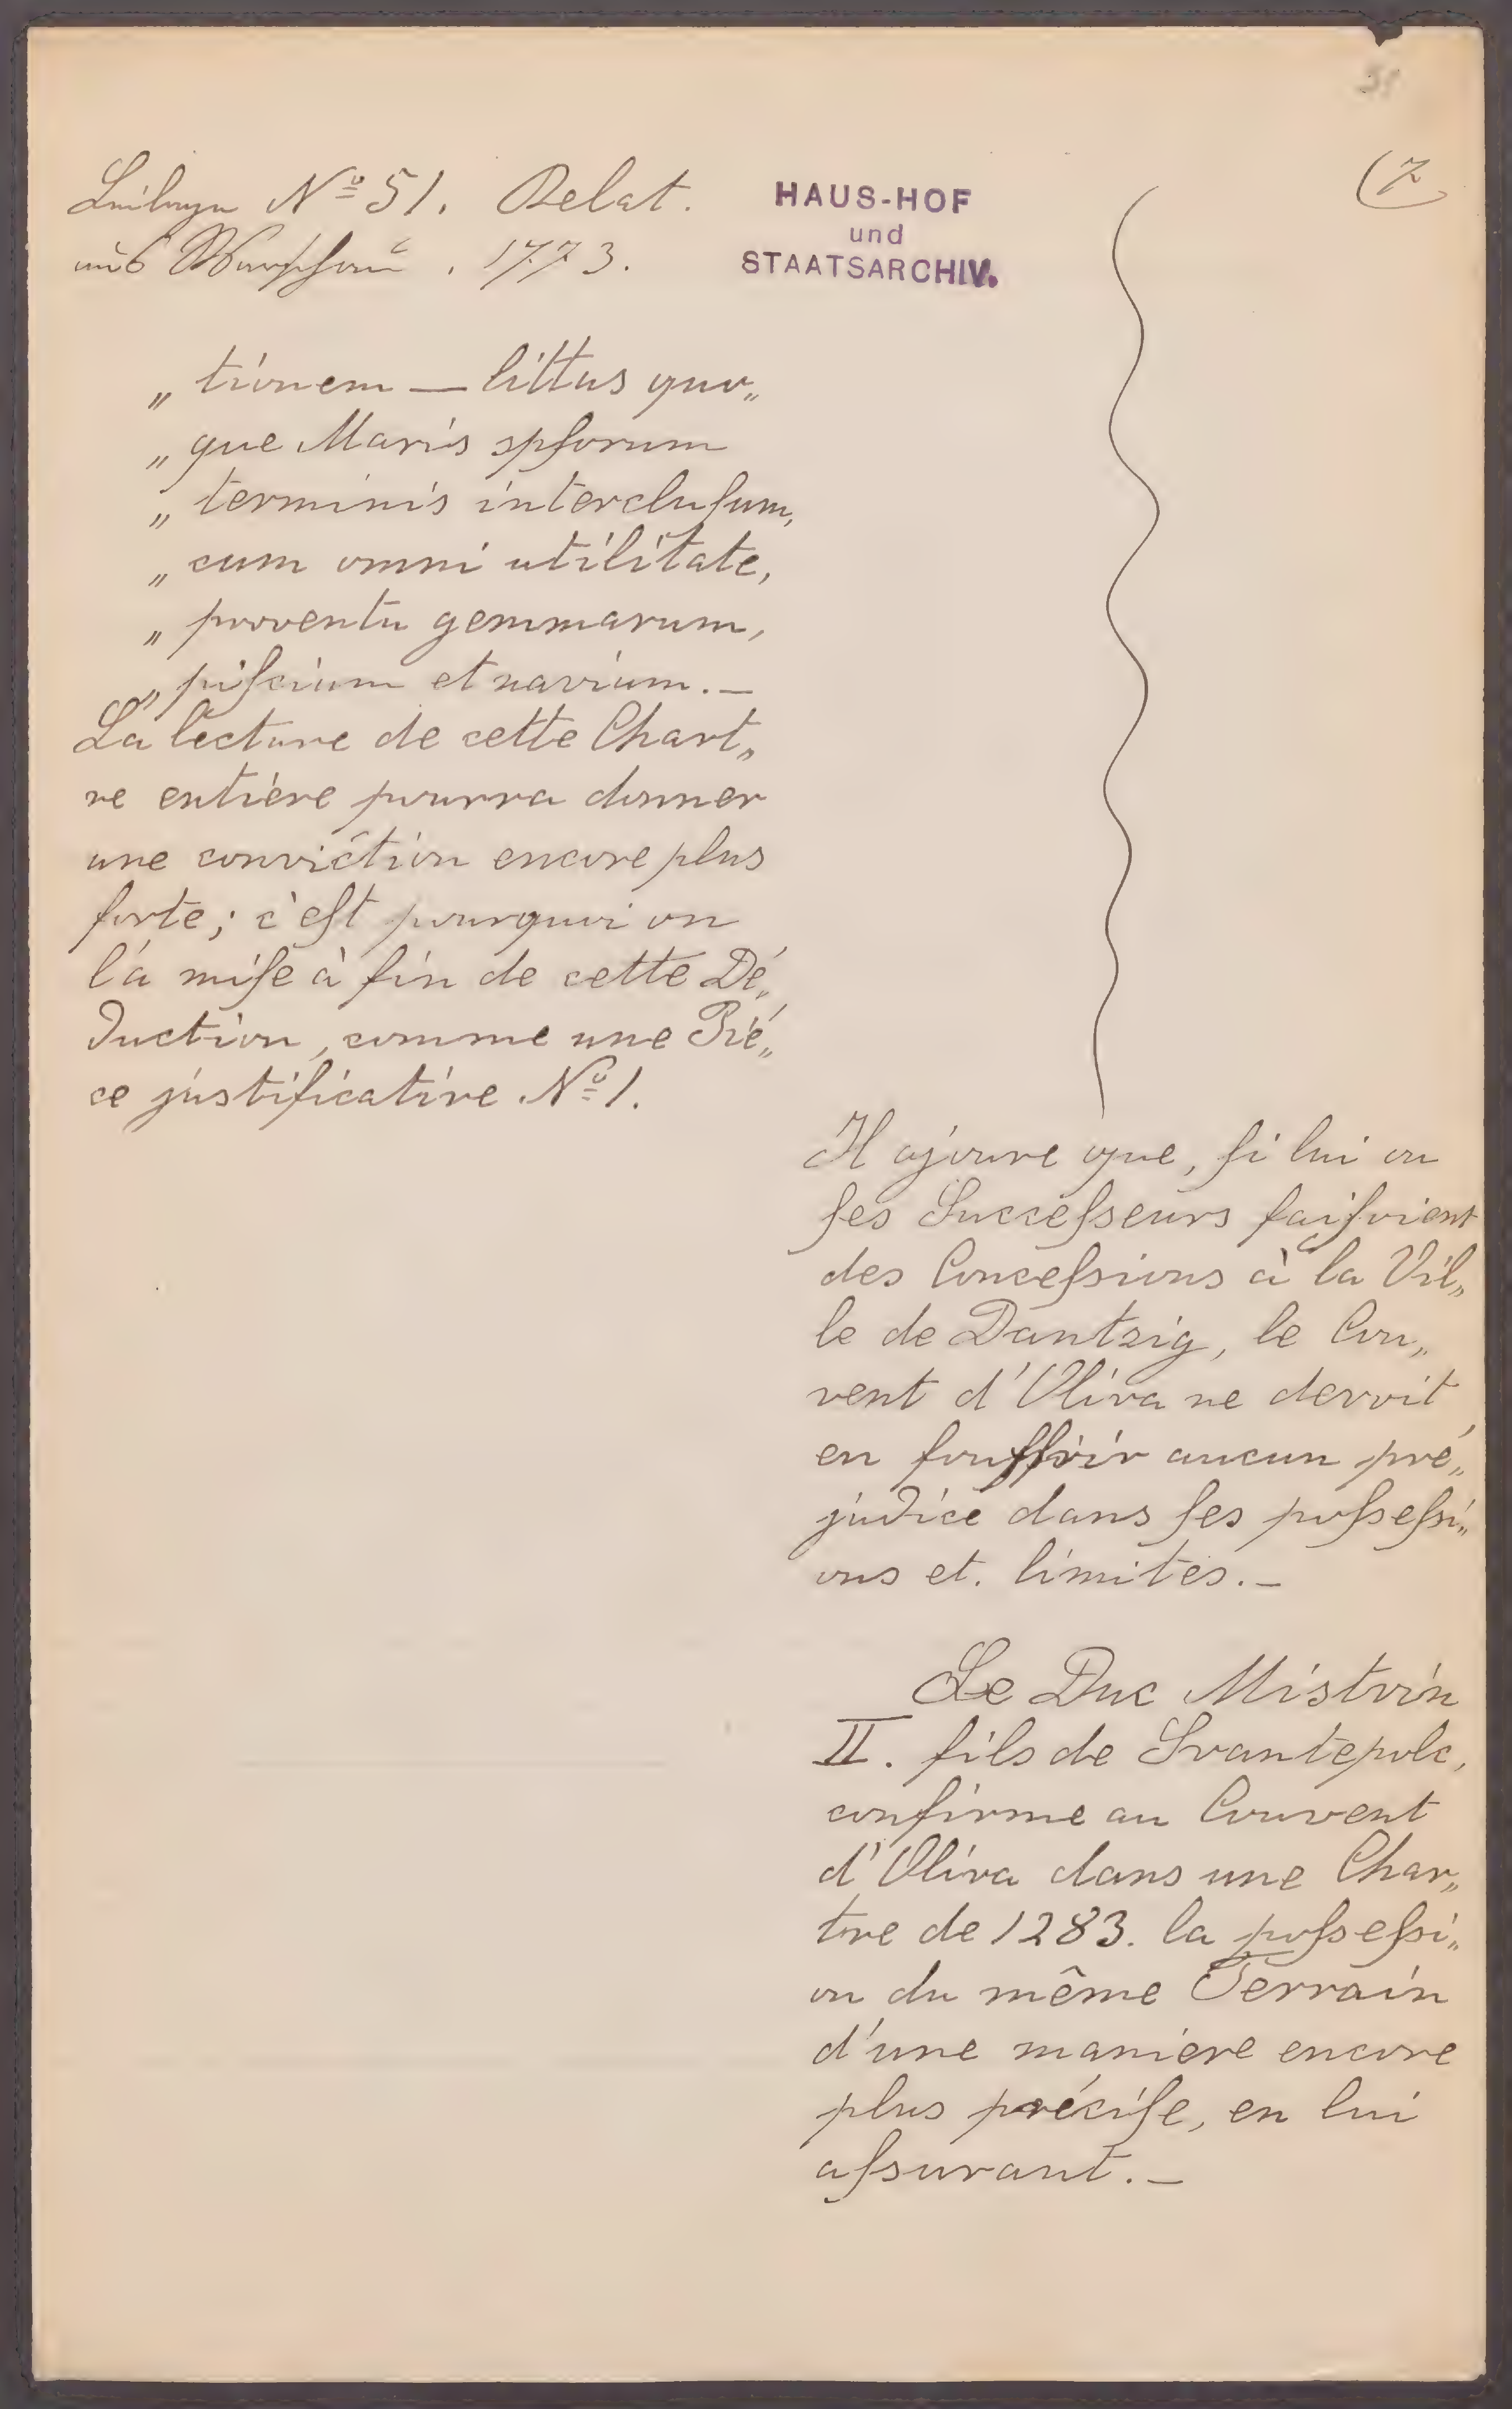 (7
Beilage Nº 51. Relat.
aus Warschau. 1773.
HAUS-HOF
und
STAATSARCHIV.
„ tionem — littus quo„
„ que Maris ipsorum
„ terminis interclusum,
„ cum omni utilitate,
„ proventu gemmarum,
„ piscium et navium. —
La lecture de cette Chart„
re entière pourra donner
une conviction encore plus
forte; c'est pourquoi on
l'a mise à fin de cette Dé„
duction, comme une Pié„
ce justificative Nº 1.
Il ajoure que, si lui ou
ses Successeurs faisoient
des Concessions à la Vil„
le de Dantzig, le Cou„
vent d'Oliva ne devoit
en souffrir aucun pré„
judice dans ses possessi„
ons et. limites. —
Le Duc Mistvin
II. fils de Svantepolc,
confirme au Couvent
d'Oliva dans une Char„
tre de 1283. la possessi„
on du même Terrain
d'une maniere encore
plus précise, en lui
assurant. —